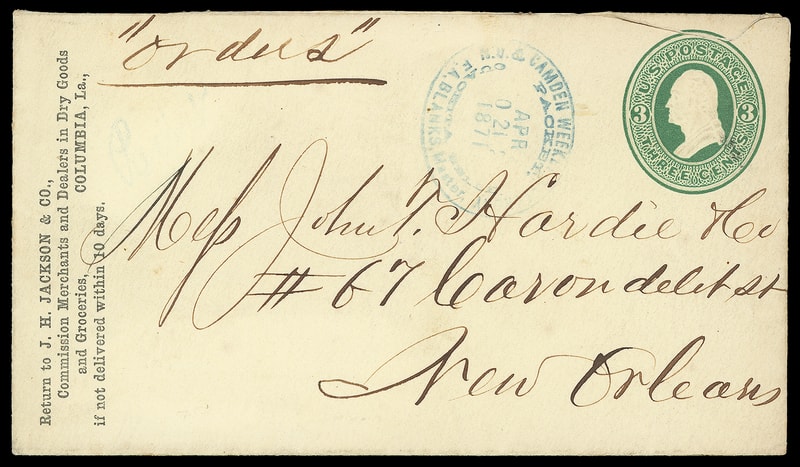 "Orders"
N.O. & CAMDEN WEEKLY
PACKET
F.A. BLANKS
APR
02
187
U.S. POSTAGE
3 3
THREE CENTS
Mess John T. Hardie & Co
# 67 Carondelit st
New Orleans
Return to J. H. JACKSON & CO.,
Commission Merchants and Dealers in Dry Goods
and Groceries, COLUMBIA, La.,
if not delivered within 10 days.